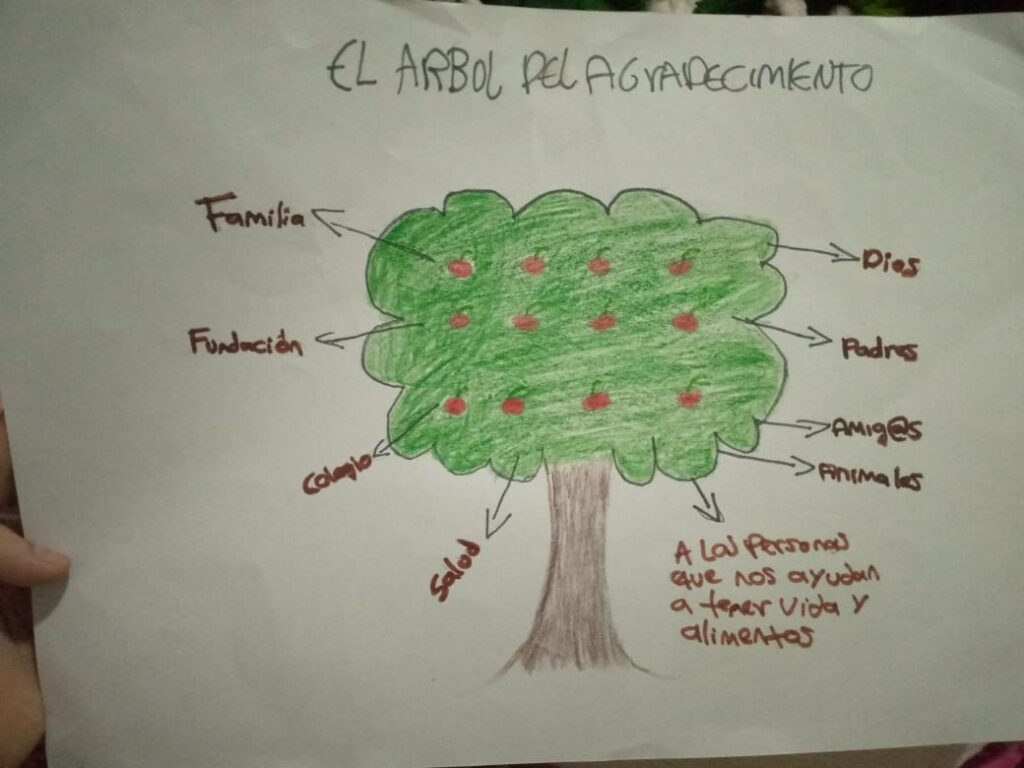 EL ARBOL DEL AGRADECIMIENTO
Familia
Dios
Fundación
Padres
Amig@s
Animales
Colegio
Salod
A Las Personas
que nos ayudan
a tener vida y
alimentos